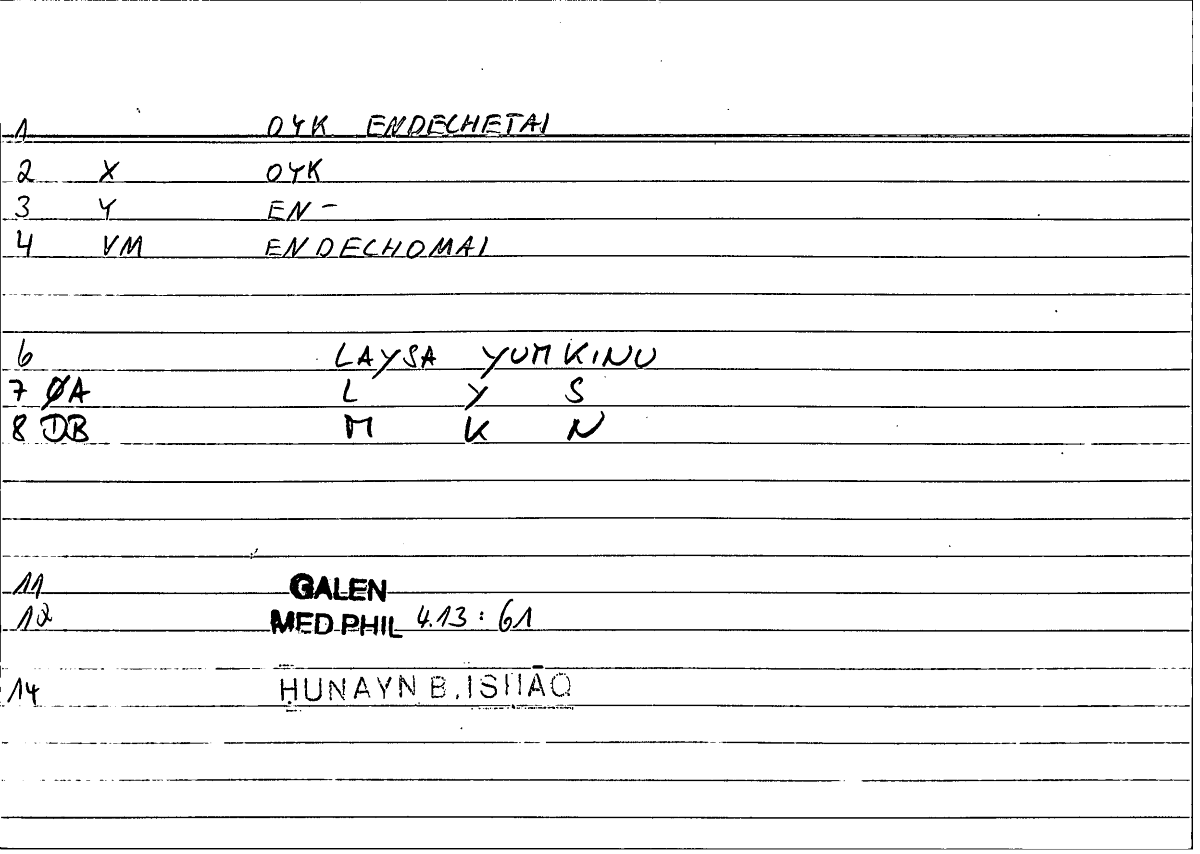 1 OYK ENDECHETAI
2 X OYK
3 Y EN-
4 VM ENDECHOMAI
6 LAYSA YUMKINU
7 ØA L Y S
8 DB M K N
11 GALEN
12 MED PHIL 4.13 : 61
14 ḤUNAYN B. ISḤĀQ